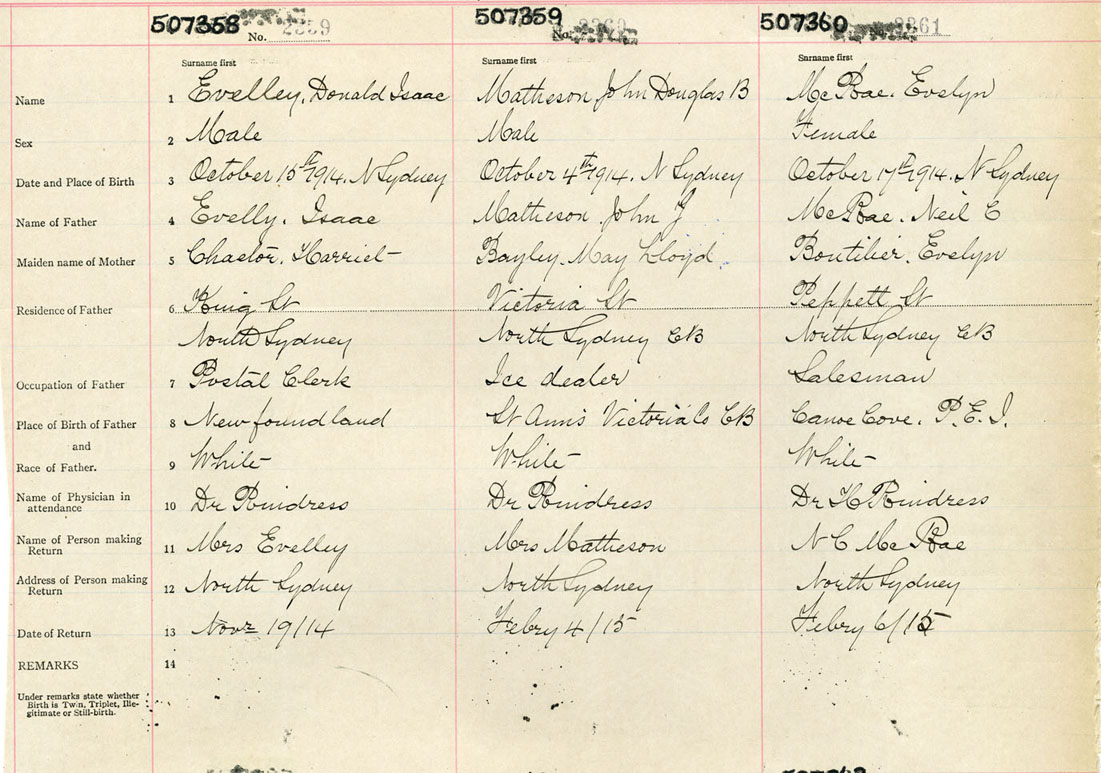 507358 No. 2359 507359 No. 2360 507360 2361
Surname first Surname first Surname first
Name 1 Evelley, Donald Isaac Matheson John Douglas B McRae. Evelyn
Sex 2 Male Male Female
Date and Place of Birth 3 October 15th 1914. N Sydney October 4th 1914. N Sydney October 17th 1914. N Sydney
Name of Father 4 Evelly. Isaac Matheson John J McRae. Neil C
Maiden name of Mother 5 Harriet Bayley. May Lloyd Boutilier. Evelyn
Residence of Father 6 King St Victoria St Peppett St
North Sydney North Sydney CB North Sydney CB
Occupation of Father 7 Postal Clerk Ice dealer Salesman
Place of Birth of Father 8 Newfoundland St Anns Victoria Co CB Canoe Cove. P.E.I.
and
Race of Father. 9 White White White
Name of Physician in
attendance 10 Dr Rindress Dr Rindress Dr H Rindress
Name of Person making
Return 11 Mrs Evelley Mrs Matheson N C McRae
Address of Person making
Return 12 North Sydney North Sydney North Sydney
Date of Return 13 Novr 19/14 Febry 4/15 Febry 6/15
REMARKS 14
Under remarks state whether
Birth is Twin, Triplet, Ille-
gitimate or Still-birth.